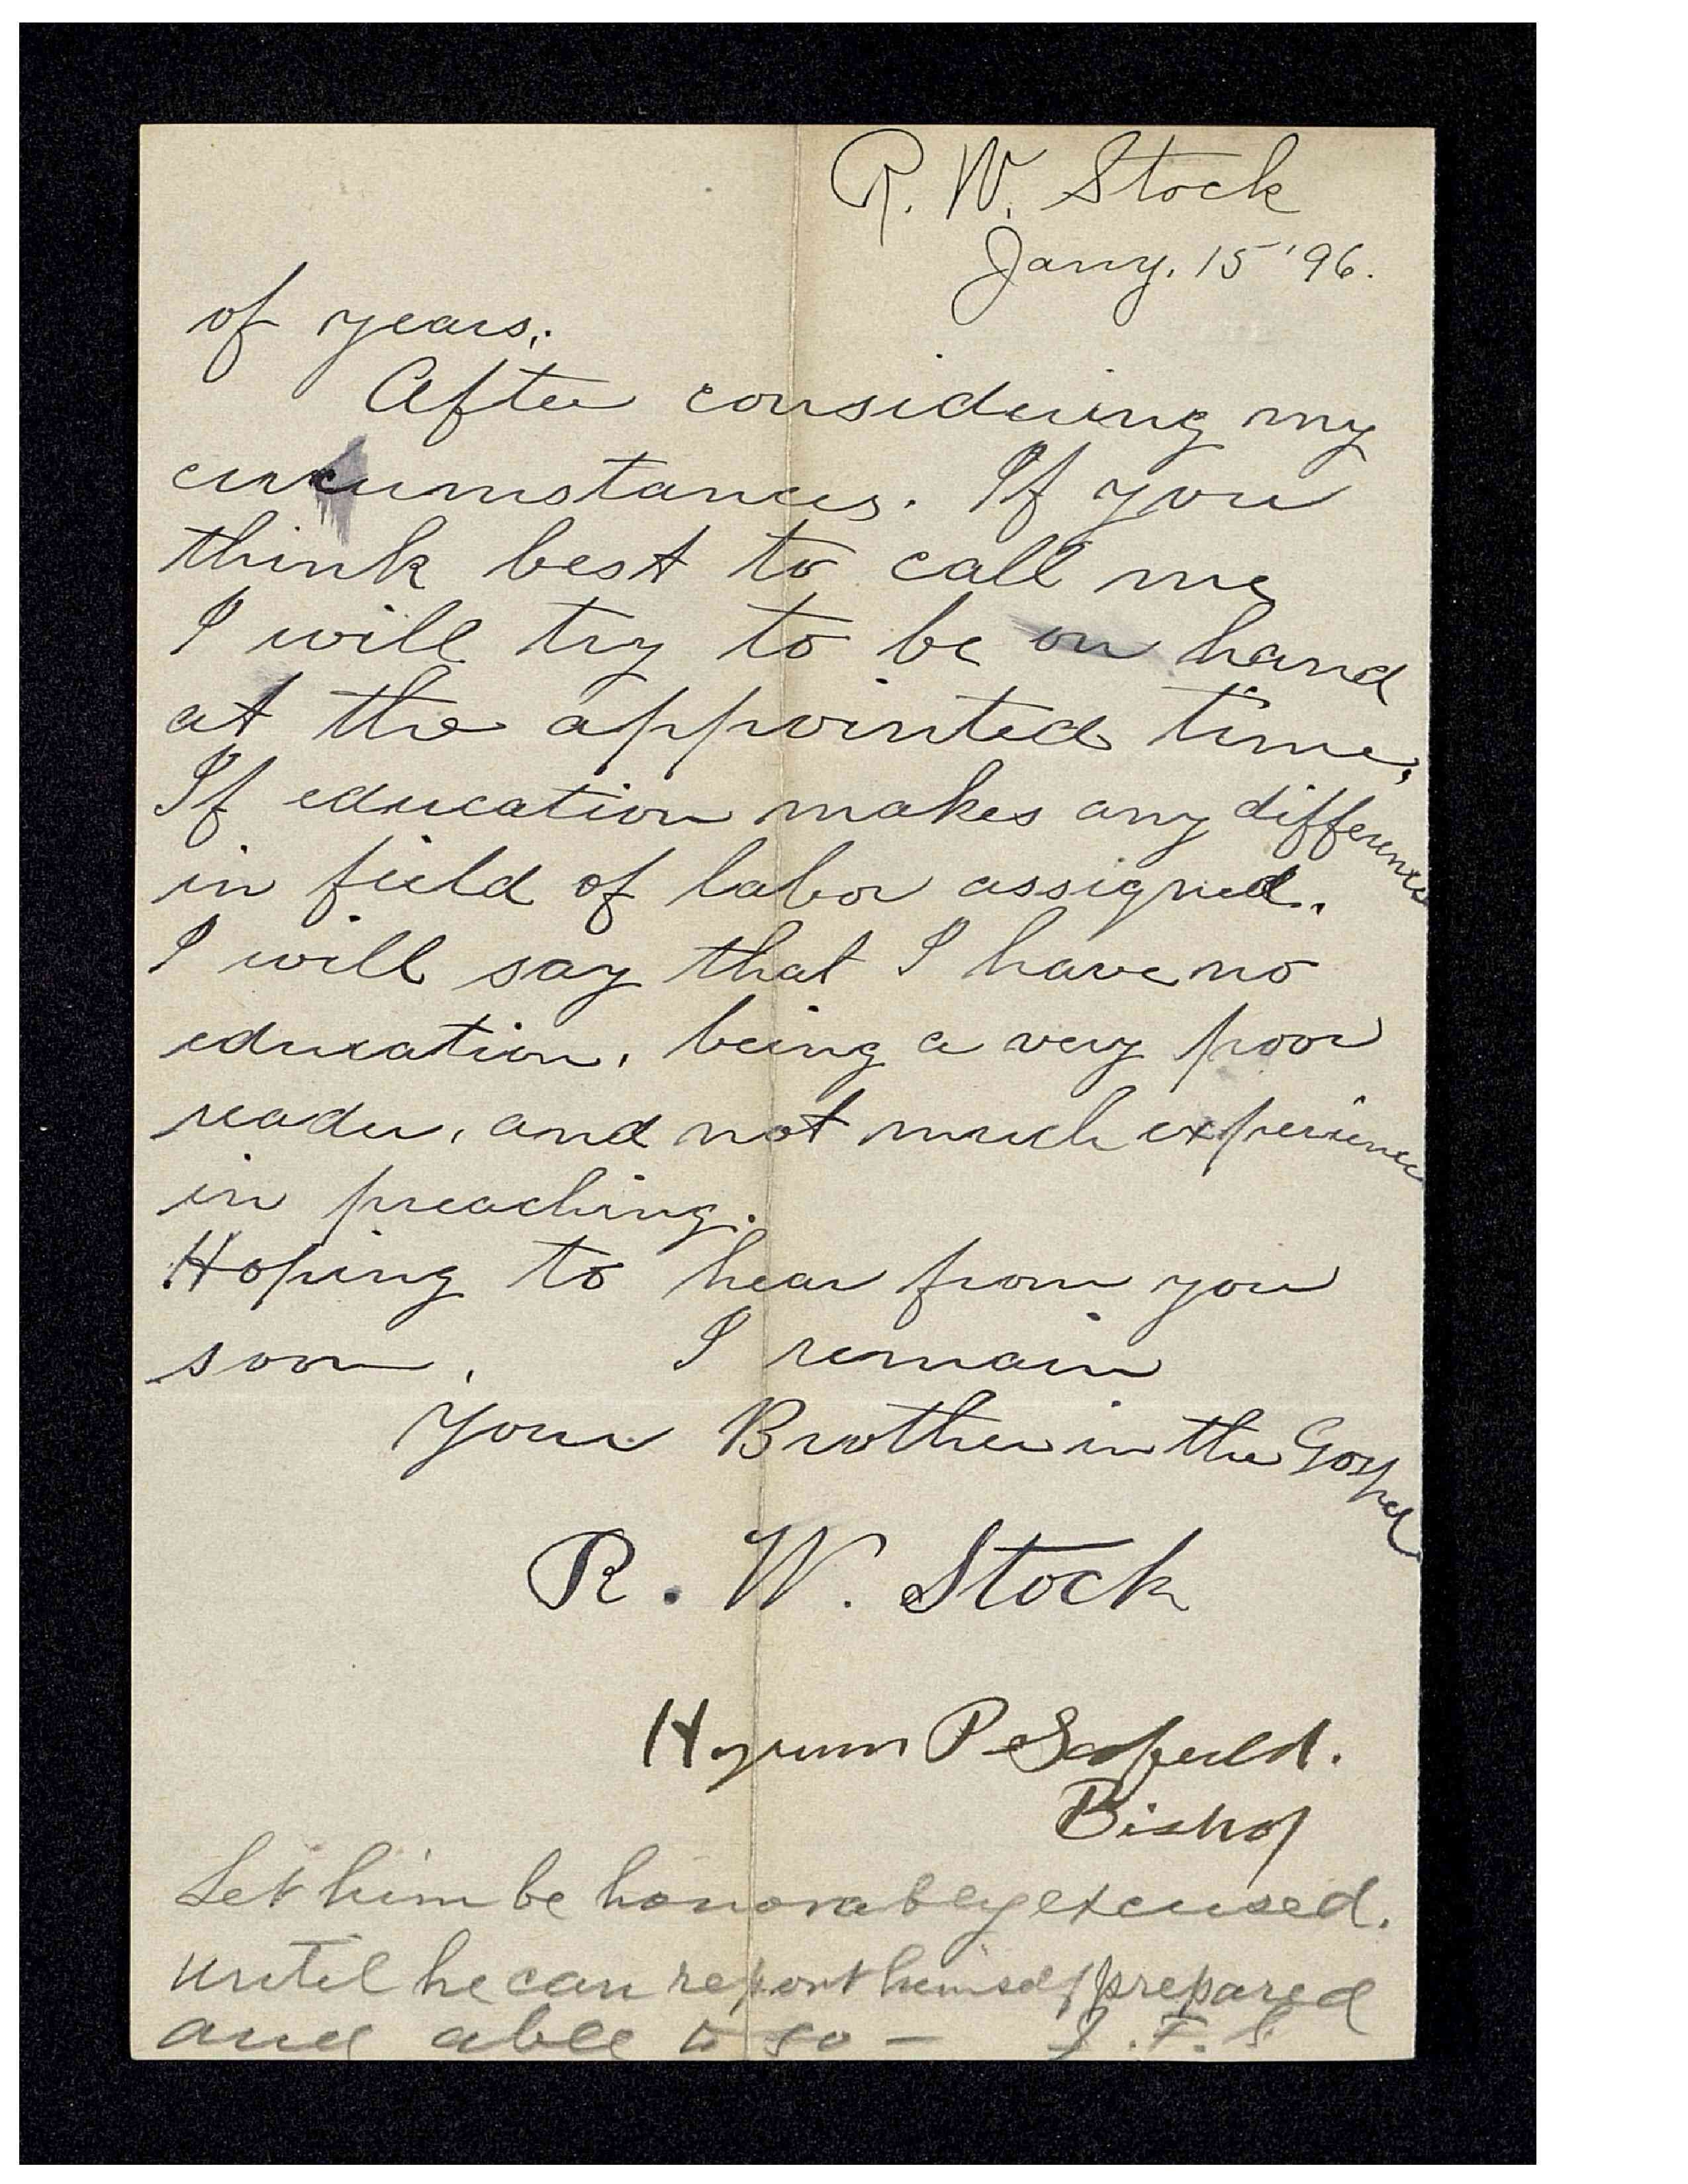 R. W. Stock
Jany. 15 '96.
of years.
After considering my
circumstances. If you
think best to call me
I will try to be on hand
at the appointed time.
If education makes any difference
in field of labor assigned.
I will say that I have no
education, being a very poor
reader, and not much experience
in preaching.
Hoping to hear from you
soon. I remain
Your Brother in the Gospel
R. W. Stock
Hyrum P Scofield.
Bishop
Let him be honorably excused.
until he can report himself prepared
and able to go — J. F. S.